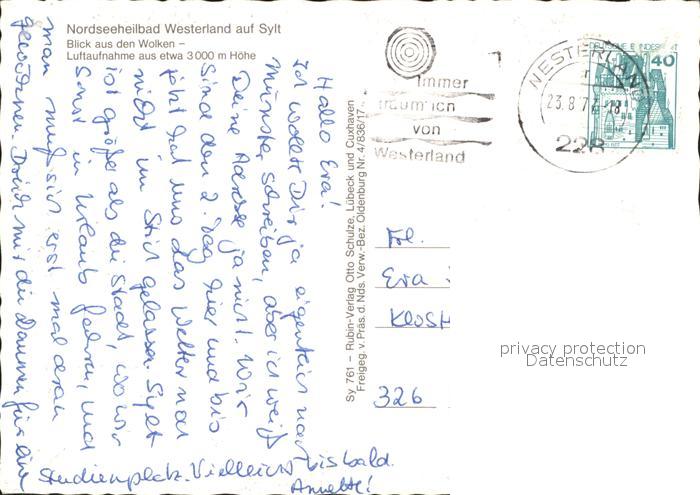 Nordseeheilbad Westerland auf Sylt
Blick aus den Wolken –
Luftaufnahme aus etwa 3000 m Höhe
Immer
träum' ich
von
Westerland
WESTERLAND
23.8.77
228
DEUTSCHE BUNDESPOST
40
Hallo Eva!
Ich wollte Dir ja eigentlich nach
Münster schreiben, aber ich weiß
Deine Adresse ja nicht. Wir
sind den 2. Tag hier und bis
jetzt hat uns das Wetter noch
nicht im Stich gelassen. Sylt
ist größer als die Stadt, wo wir
sonst in Urlaub fahren, und
man muß sich erst mal daran
gewöhnen. Drück mir die Daumen für ein
Studienplatz. Vielleicht bis bald.
Annette!
Sy 761 – Rubin-Verlag Otto Schulze, Lübeck und Cuxhaven
Freigeg. v. Präs. d. Nds. Verw.-Bez. Oldenburg Nr. 4/836/17
Frl.
Eva
Klost
326
privacy protection
Datenschutz